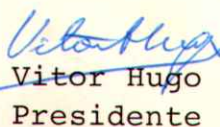 Vitor Hugo
Vitor Hugo
Presidente